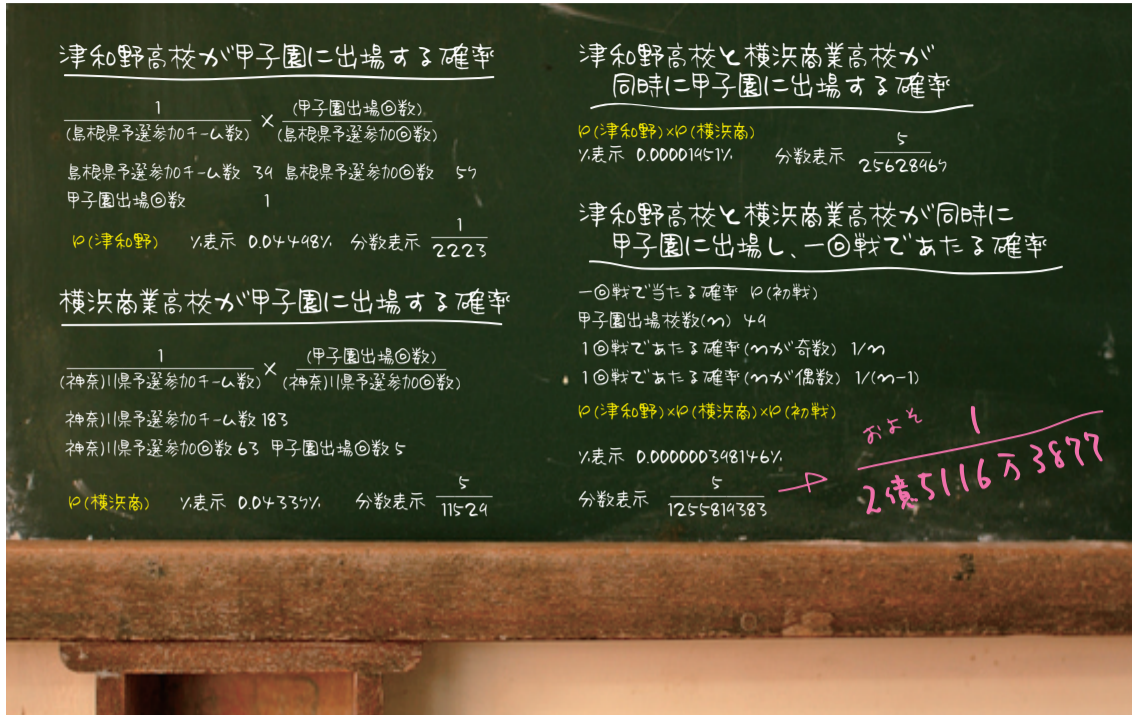 津和野高校が甲子園に出場する確率
1 (甲子園出場回数)
×
(島根県予選参加チーム数) (島根県予選参加回数)
島根県予選参加チーム数 39 島根県予選参加回数 57
甲子園出場回数 1
P(津和野) %表示 0.04498% 分数表示 1
2223
横浜商業高校が甲子園に出場する確率
1 (甲子園出場回数)
×
(神奈川県予選参加チーム数) (神奈川県予選参加回数)
神奈川県予選参加チーム数 183
神奈川県予選参加回数 63 甲子園出場回数 5
P(横浜商) %表示 0.04337% 分数表示 5
11529
津和野高校と横浜商業高校が
同時に甲子園に出場する確率
P(津和野)×P(横浜商)
%表示 0.00001951% 分数表示 5
25628967
津和野高校と横浜商業高校が同時に
甲子園に出場し、一回戦であたる確率
一回戦で当たる確率 P(初戦)
甲子園出場校数(n) 49
1回戦であたる確率(nが奇数) 1/n
1回戦であたる確率(nが偶数) 1/(n-1)
P(津和野)×P(横浜商)×P(初戦)
%表示 0.000000398146%
分数表示 5
1255819383
→
およそ 1
2億5116万3877